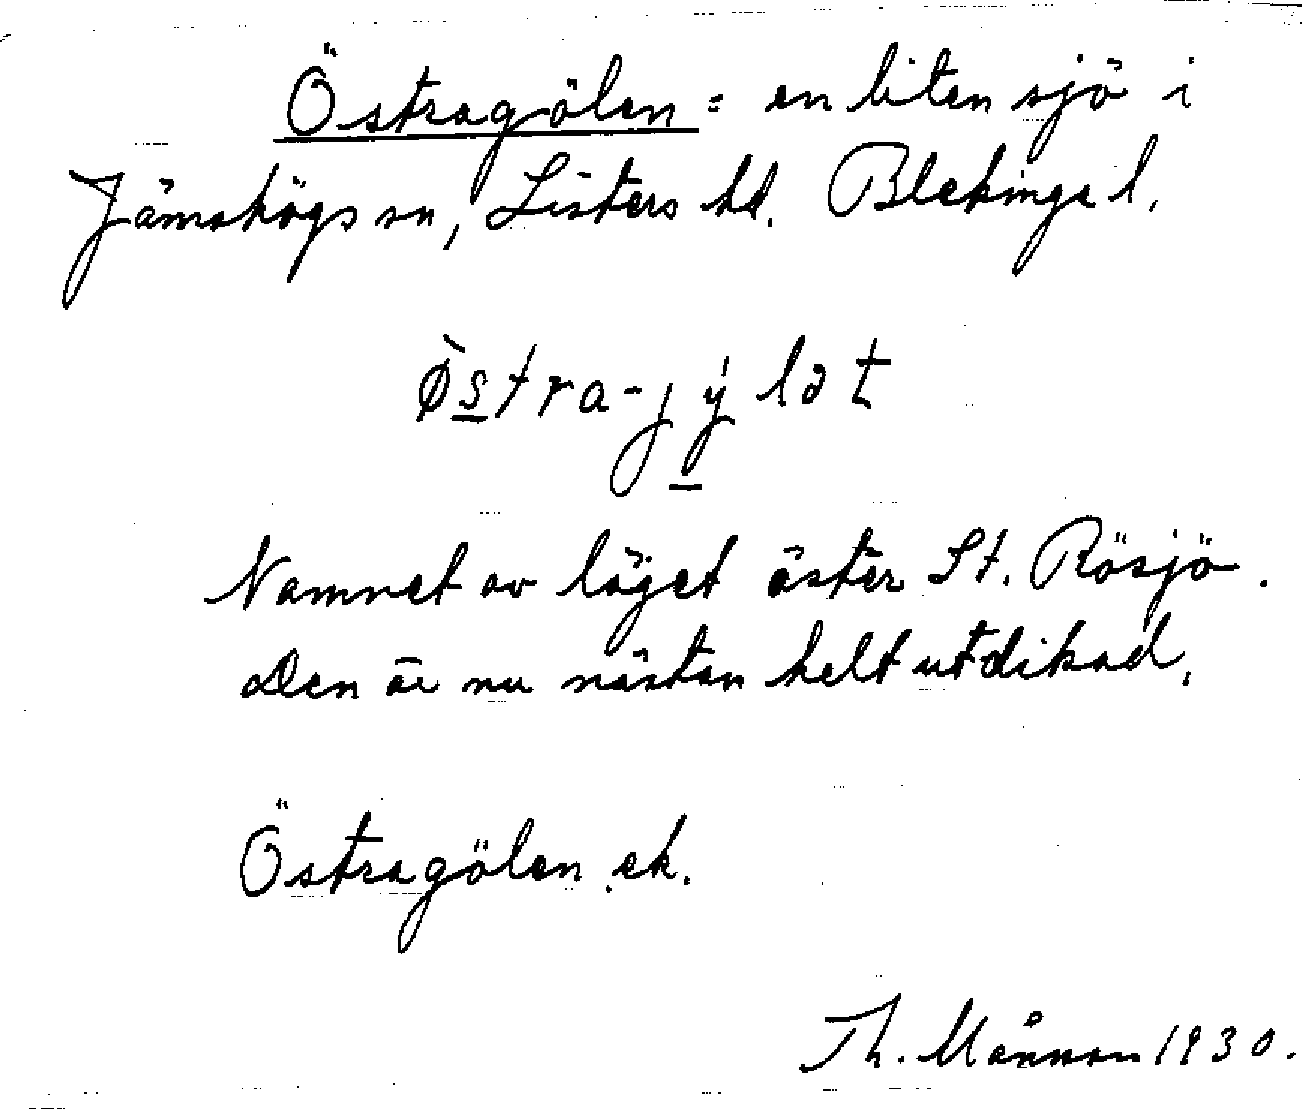 Östragölen = en liten sjö i
Jämshögs sn, Listers hd. Blekinge l.
østra-jylət
Namnet av läget öster St. Rösjö.
Den är nu nästan helt utdikad.
Östragölen ek.
Th. Månson 1930.